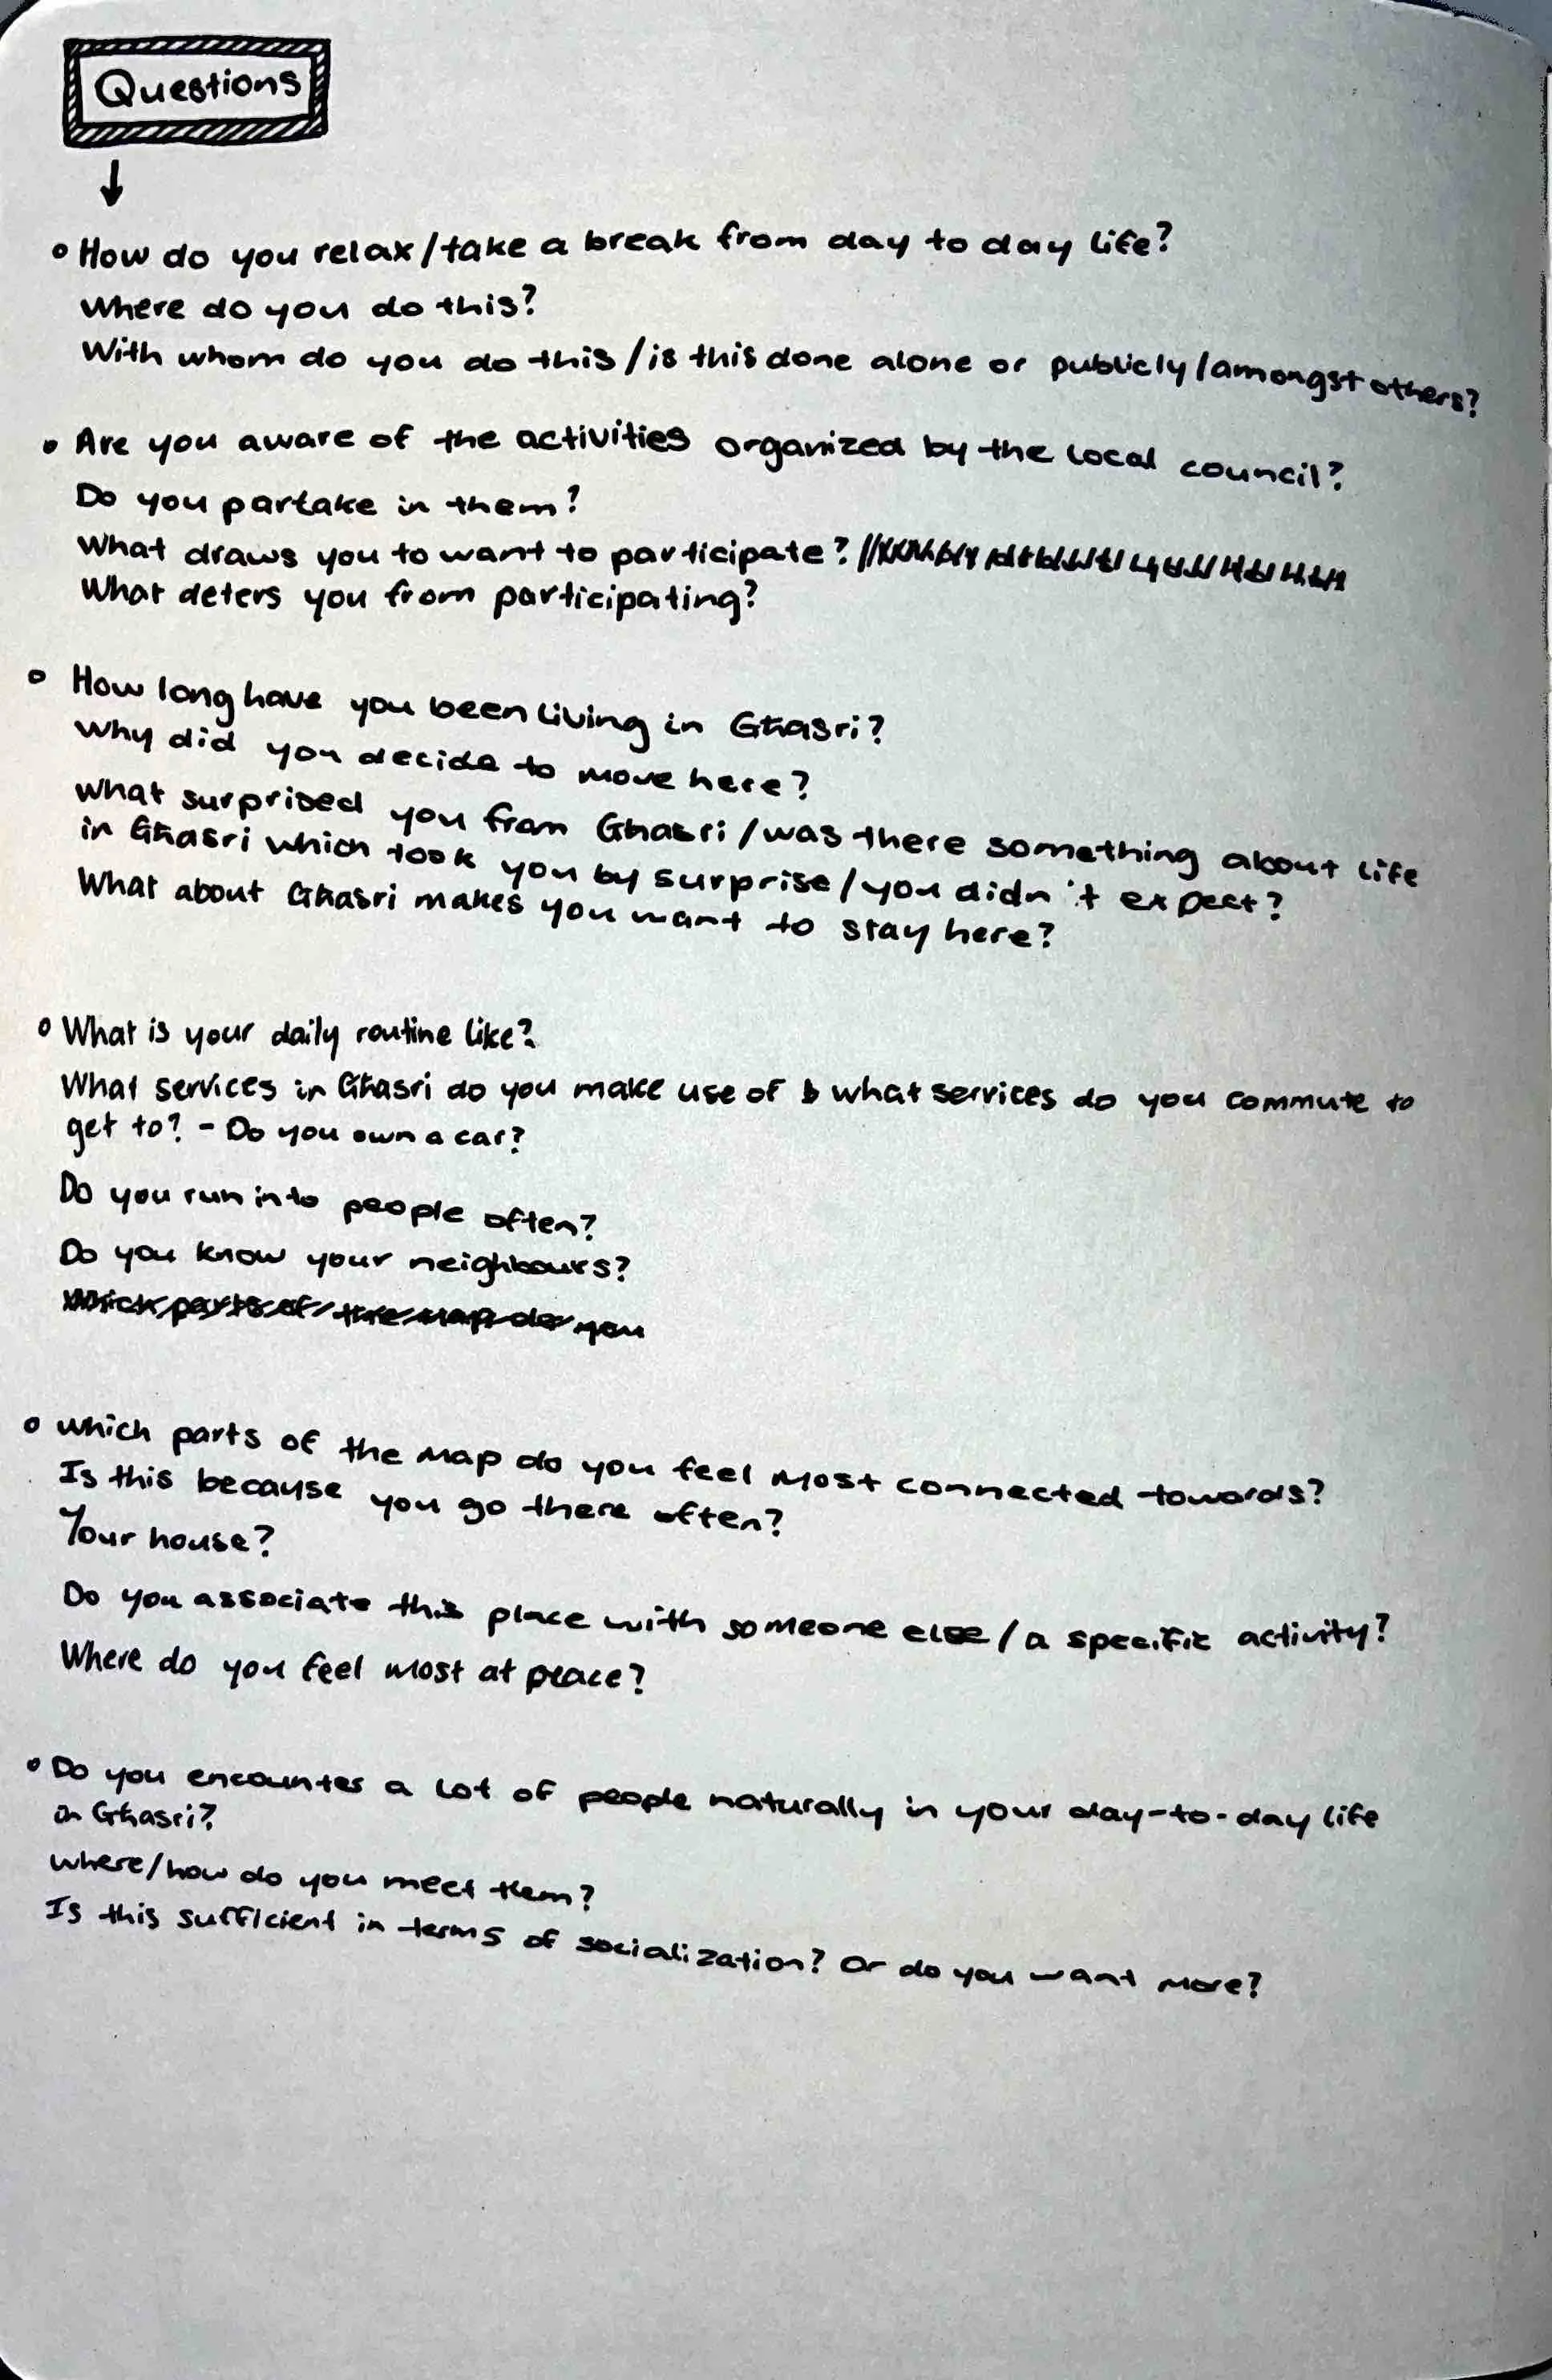 Questions
How do you relax/take a break from day to day life?
Where do you do this?
With whom do you do this/is this done alone or publicly/amongst others?
Are you aware of the activities organized by the local council?
Do you partake in them?
What draws you to want to participate?
What deters you from participating?
How long have you been living in Għasri?
Why did you decide to move here?
What surprised you from Għasri/was there something about life
in Għasri which took you by surprise/you didn't expect?
What about Għasri makes you want to stay here?
What is your daily routine like?
What services in Għasri do you make use of & what services do you commute to
get to? - Do you own a car?
Do you run into people often?
Do you know your neighbours?
Which parts of the map do you
Which parts of the map do you feel most connected towards?
Is this because you go there often?
Your house?
Do you associate this place with someone else/a specific activity?
Where do you feel most at peace?
Do you encounter a lot of people naturally in your day-to-day life
in Għasri?
Where/how do you meet them?
Is this sufficient in terms of socialization? Or do you want more?